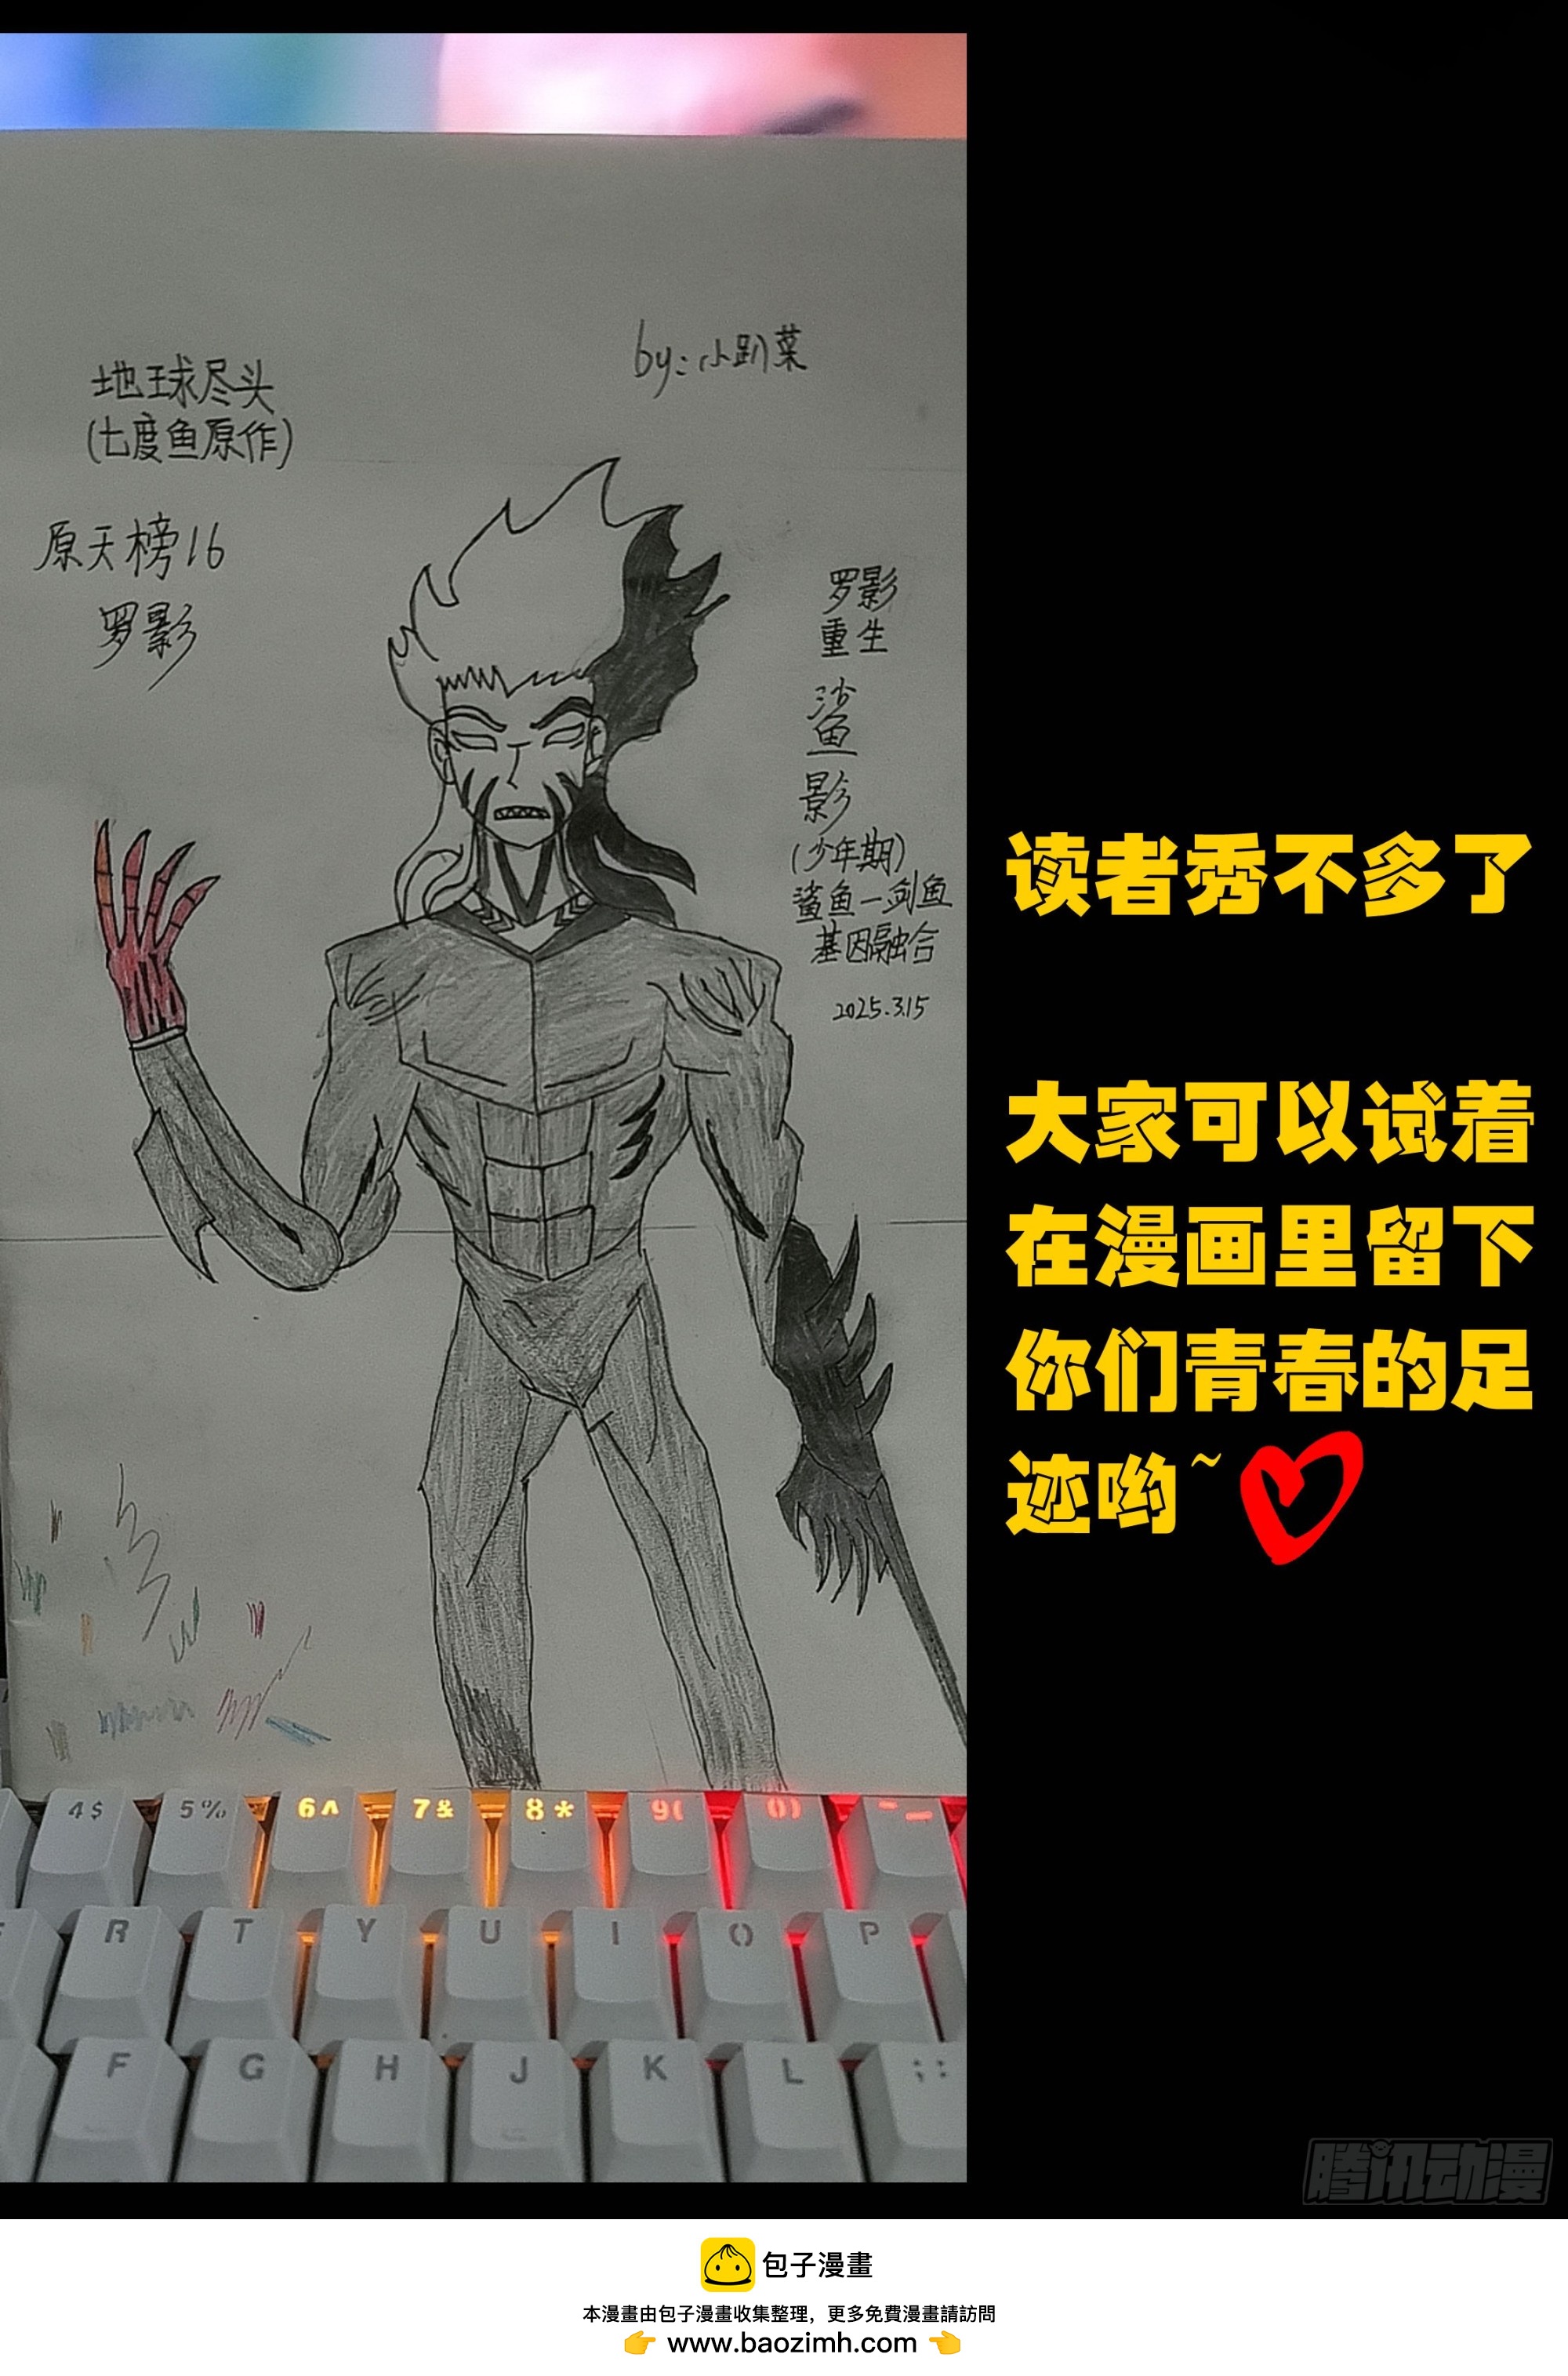 地球尽头
(七度鱼原作)
by:小趴菜
原天榜16
罗影
罗影
重生
鲨
影
(少年期)
鲨鱼—剑鱼
基因融合
2025.3.15
读者秀不多了
大家可以试着
在漫画里留下
你们青春的足
迹哟~
4$ 5% 6^ 7& 8* 9( 0) -_
R T Y U I O P
F G H J K L ;:
腾讯动漫
包子漫畫
本漫畫由包子漫畫收集整理，更多免費漫畫請訪問
👉 www.baozimh.com 👈